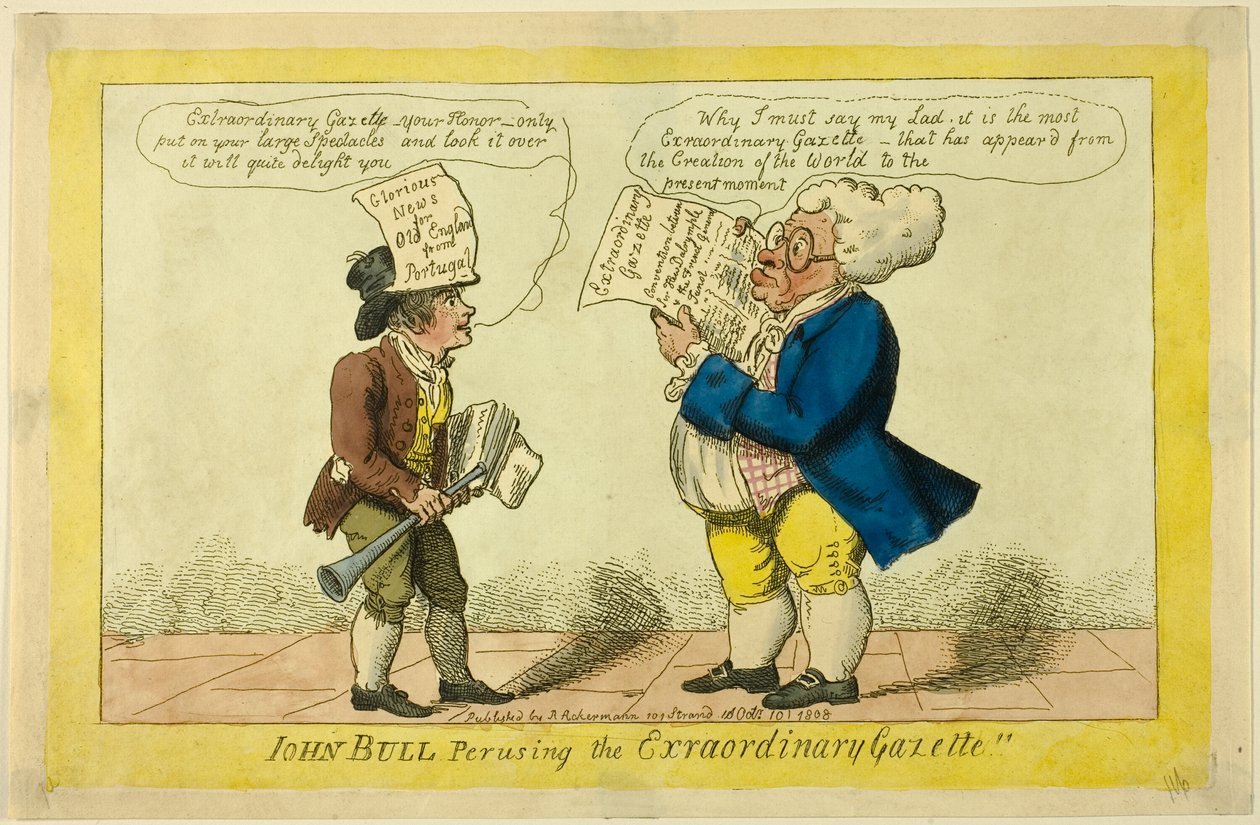 Extraordinary Gazette - your Honor - only
put on your large Spectacles and look it over
it will quite delight you
Glorious
News
for
Old England
from
Portugal
Why I must say my Lad, it is the most
Exraordinary Gazette - that has appear'd from
the Creation of the World to the
present moment
Extraordinary
Gazette
Convention between
Sir Hew Dalrymple
& the French General
Junot
Published by R Ackermann 101 Strand Octr 10 1808
IOHN BULL Perusing the Exraordinary Gazette!!